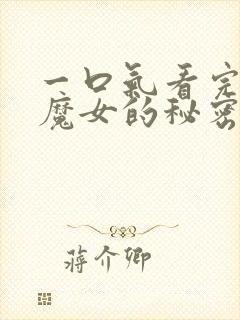 一口氣看完
魔女的秘密
蔣介卿